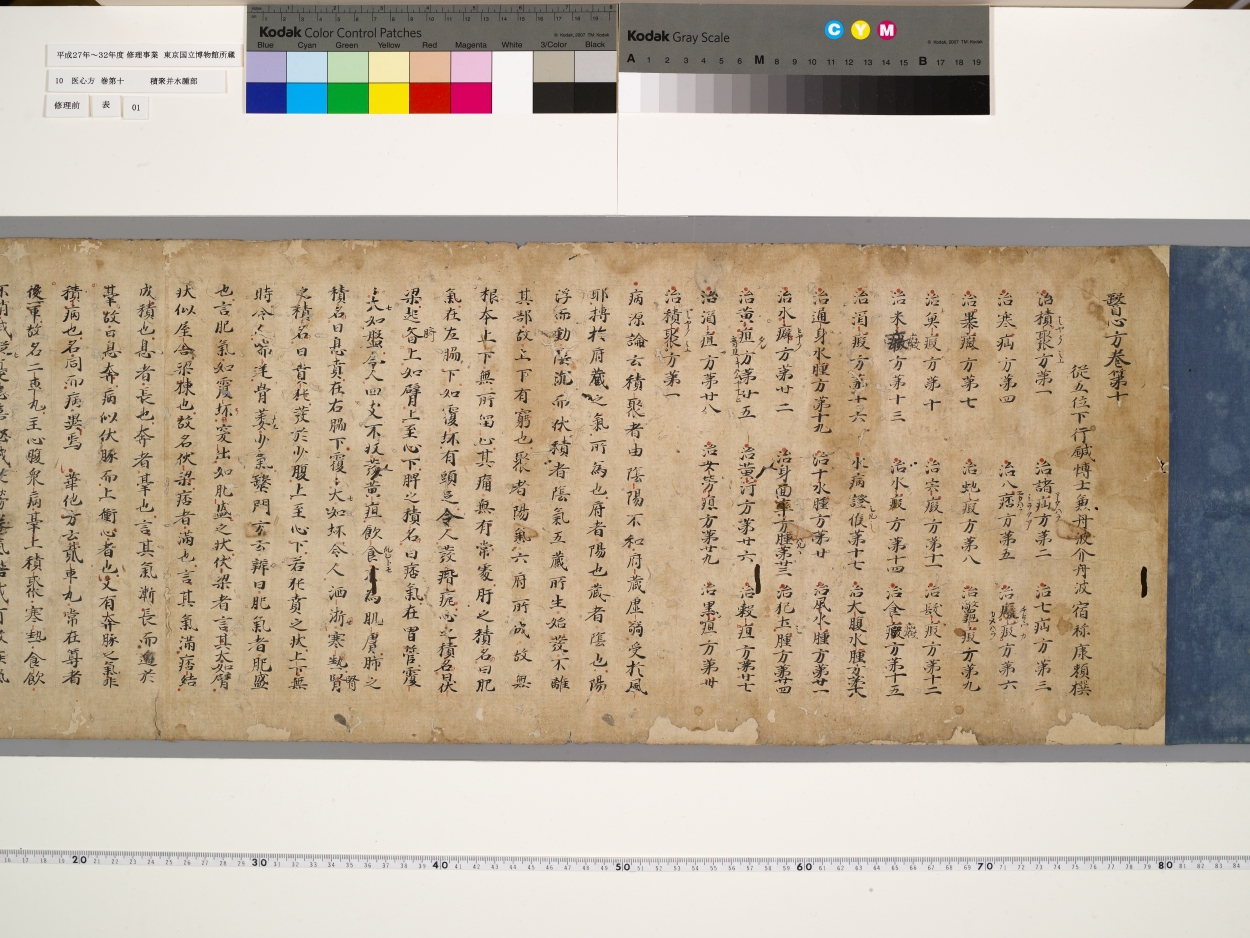 平成27年～32年度 修理事業 東京国立博物館所蔵
10 医心方 巻第十 積聚并水腫部
修理前 表 01
Kodak Color Control Patches
© Kodak, 2007 TM: Kodak
Blue Cyan Green Yellow Red Magenta White 3/Color Black
Kodak Gray Scale
C Y M
© Kodak, 2007 TM: Kodak
A 1 2 3 4 5 6 M 8 9 10 11 12 13 14 15 B 17 18 19
醫心方巻第十
従五位下行鍼博士兼丹波介丹波宿祢康頼撰
治積聚方第一 治諸疝方第二 治七疝方第三
治寒疝方第四 治八痞方第五 治癥瘕方第六
治暴癥方第七 治虵瘕方第八 治鼈瘕方第九
治魚瘕方第十 治宍瘕方第十一 治髮瘕方第十二
治米癥方第十三 治水瘕方第十四 治食癥方第十五
治酒瘕方第十六 水病證候第十七 治大腹水腫方第十八
治通身水腫方第十九 治十水腫方第廿 治風水腫方第廿一
治水癖方第廿二 治身面腫方第廿三 治犯土腫方第廿四
治黄疸方第廿五 治黄汗方第廿六 治穀疸方第廿七
治酒疸方第廿八 治女勞疸方第廿九 治黒疸方第卅
治積聚方第一
病源論云積聚者由陰陽不和府蔵虚弱受於風
耶搏於府蔵之氣所為也府者陽也蔵者陰也陽
浮而動陰沉而伏積者陰氣五蔵所生始發不離
其部故上下有窮也聚者陽氣六府所成故無
根本上下無所留止其痛無有常處肝之積名曰肥
氣在左脇下如覆坏有頭足令人發痟瘧心之積名曰伏
梁起齊上如臂上至心下脾之積名曰痞氣在胃管覆
大如盤令人四支不收發黄疸飲食不為肌膚肺之
積名曰息賁在右脇下覆大如坏令人洒淅寒熱腎
之積名曰賁㹠發於少腹上至心下若㹠賁之状上下無
時令人喘逆骨萎少氣醫門方云辨曰肥氣者肥盛
也言肥氣如覆坏突出如肥盛之状伏梁者言其大如臂
状似屋舎梁棟也故名伏梁痞者滿也言其氣滿痞結
成積也息者長也奔者墓也言其氣漸長而逼於
墓故曰息奔病似伏豚而上衝心者也又有奔豚之氣非
積病也名同而病異焉 華他方云貳車丸常在尊者
後軍故名二車丸主心腹衆病墓上積聚寒熱食飲
16 17 18 19 20 21 22 23 24 25 26 27 28 29 30 31 32 33 34 35 36 37 38 39 40 41 42 43 44 45 46 47 48 49 50 51 52 53 54 55 56 57 58 59 60 61 62 63 64 65 66 67 68 69 70 71 72 73 74 75 76 77 78 79 80 81 82 83 84